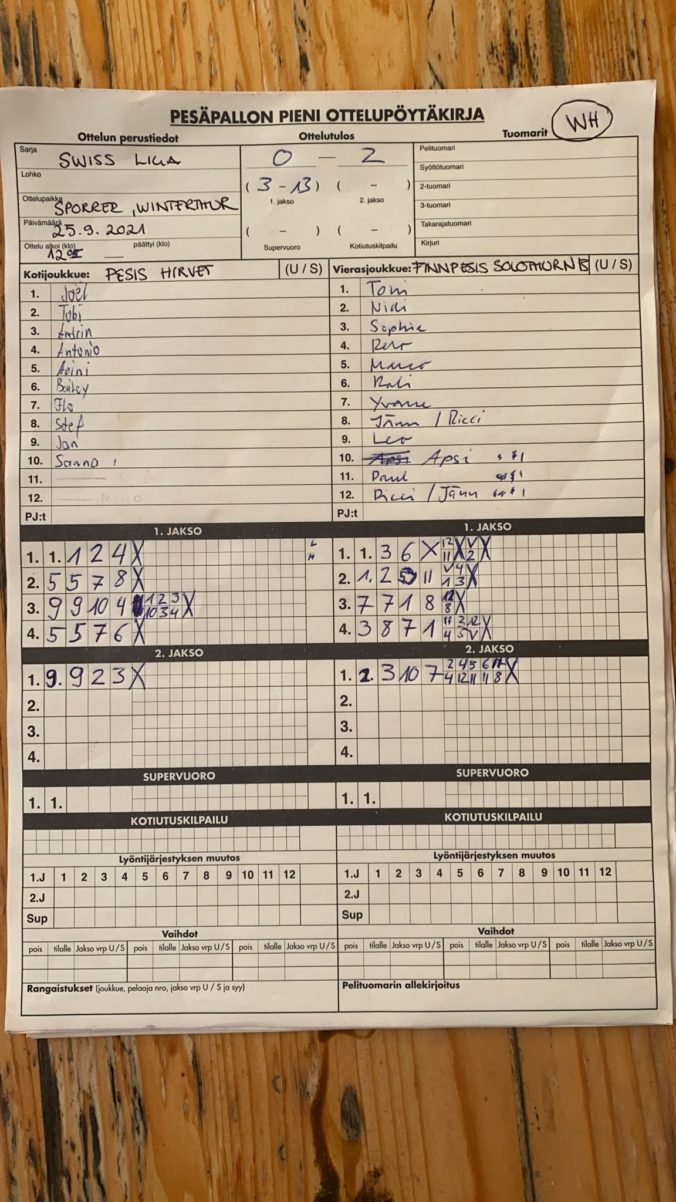 PESÄPALLON PIENI OTTELUPÖYTÄKIRJA
Ottelun perustiedot Ottelutulos Tuomarit WH
Sarja SWISS LIIGA
Lohko
Ottelupaikka SPORRER, WINTERTHUR
Päivämäärä 25.9.2021
Ottelu alkoi (klo) päättyi (klo)
0 – 2
( 3 – 13 ) ( – )
1. jakso 2. jakso
( – ) ( – )
Supervuoro Kotiutuskilpailu
Pelituomari
Syöttötuomari
2-tuomari
3-tuomari
Takarajatuomari
Kirjuri
Kotijoukkue: PESIS HIRVET (U / S)
1. Joël
2. Tobi
3. Andrin
4. Antonio
5. Aeini
6.
7. Flo
8. Stef
9. Jan
10. Sanna
11.
12.
PJ:t
Vierasjoukkue: FINNPESIS SOLOTHURN (U / S)
1. Toni
2.
3. Sophie
4. Reto
5. Marco
6.
7. Yvonne
8. Jänu / Ricci
9. Leo
10. Apsi
11. Paul
12. Ricci / Jänu
PJ:t
1. JAKSO
1. 1. 1 2 4 X
2. 5 5 7 8 X
3. 9 9 10 4 1 2 3 10 3 4 X
4. 5 5 7 6 X
2. JAKSO
1. 9. 9 2 3 X
2.
3.
4.
SUPERVUORO
1. 1.
KOTIUTUSKILPAILU
1. JAKSO
1. 1. 3 6 X
2. 1. 2
3. 7 7 1 8
4. 3 8 7 1
2. JAKSO
1. 2. 3 10 7
2.
3.
4.
SUPERVUORO
1. 1.
KOTIUTUSKILPAILU
Lyöntijärjestyksen muutos
1.J 1 2 3 4 5 6 7 8 9 10 11 12
2.J
Sup
Vaihdot
pois tilalle Jakso vrp U / S pois tilalle Jakso vrp U / S pois tilalle Jakso vrp U / S
Rangaistukset (joukkue, pelaaja nro, jakso vrp U / S ja syy)
Lyöntijärjestyksen muutos
1.J 1 2 3 4 5 6 7 8 9 10 11 12
2.J
Sup
Vaihdot
pois tilalle Jakso vrp U / S pois tilalle Jakso vrp U / S pois tilalle Jakso vrp U / S
Pelituomarin allekirjoitus